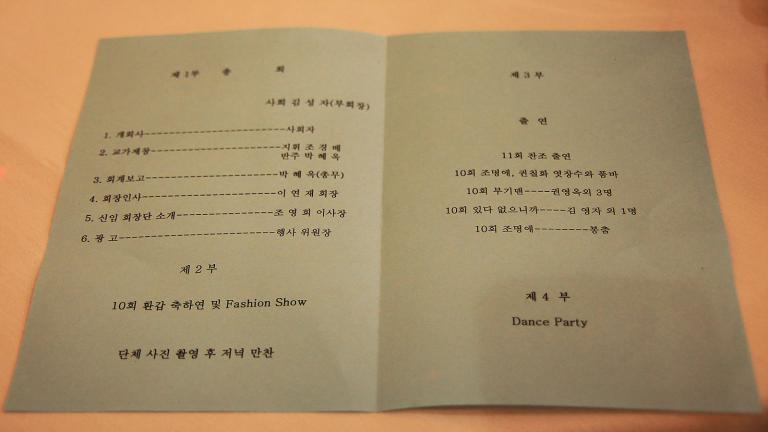 제 1부 총 회
사회 김 성 자(부회장)
1. 개회사-----------------------사회자
2. 교가제창----------------------지휘 조 경 배
반주 박 혜 옥
3. 회계보고----------------------박 혜 옥(총무)
4. 회장인사----------------------이 연 재 회장
5. 신임 회장단 소개---------------조 영 희 이사장
6. 광 고-------------------------행사 위원장
제 2 부
10회 환갑 축하연 및 Fashion Show
단체 사진 촬영 후 저녁 만찬
제 3 부
출 연
11회 찬조 출연
10회 조명애, 권칠화 엿장수와 품바
10회 부기맨----권영옥의 3명
10회 있다 없으니까----김 영자 의 1명
10회 조명애--------봉춤
제 4 부
Dance Party